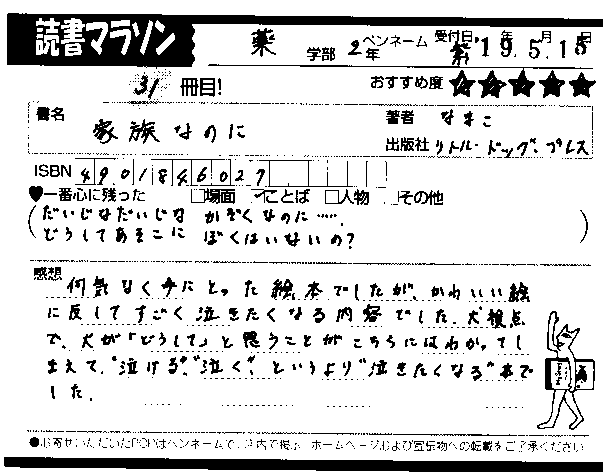 読書マラソン
薬 学部 2年 ペンネーム 受付日 '19年5月15日
31冊目! おすすめ度 ★★★★★
書名 家族なのに
著者 なまこ
出版社 リトル・ドッグ・プレス
ISBN 4901846027
♥一番心に残った □場面 ☑ことば □人物 □その他
(だいじなだいじな かぞくなのに……
どうしてあそこに ぼくはいないの?)
感想 何気なく手にとった絵本でしたが、かわいい絵
に反してすごく泣きたくなる内容でした。犬視点
で、犬が「どうして」と思うことがこちらにはわかってし
まえて、"泣ける""泣く"、というより"泣きたくなる"本で
した。
●お寄せいただいたPOPはペンネームで、店内で掲示、ホームページおよび宣伝物への転載をご了承ください